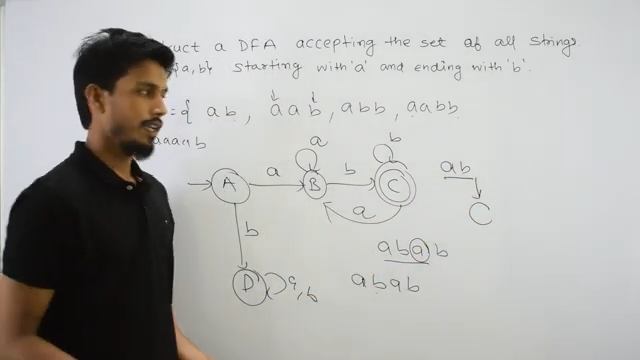 a DFA accepting the set of all strings
{a,b} starting with 'a' and ending with 'b'.
= { ab, aab, abb, aabb
aaaab
a b
A a B b C ab
a C
b
ab a b
D a,b abab